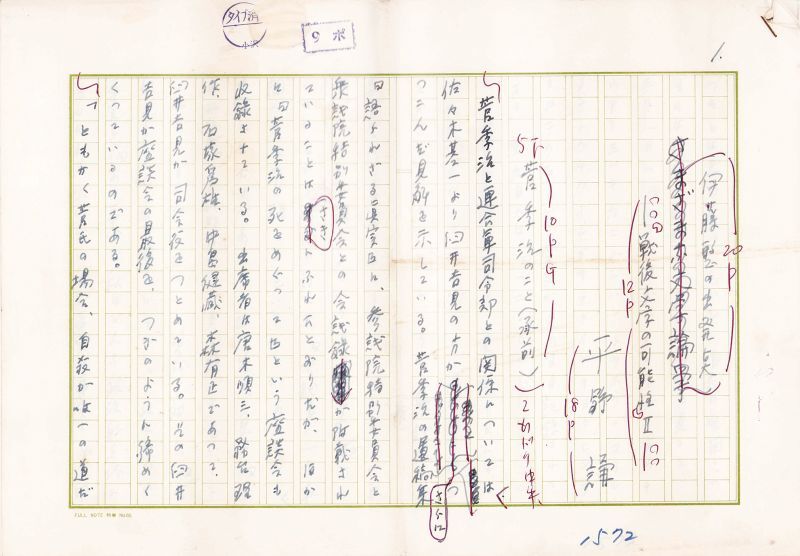 タイプ済
小沢
9ポ
1.
伊藤整の出発点
20P
さまざまな文学論争
戦後文学の可能性 II
12P
平野謙
18P
5下
菅季治のこと(承前)
10PG
2行ドリ中央
菅季治と連合軍司令部との関係については
佐々木基一より臼井吉見の方が
さらに
つっこんだ見解を示している。菅季治の遺稿集
『語られざる真実』には、参議院特別委員会と
衆議院特別委員会との会議録が附載され
ていることは
さき
にふれたとおりだが、ほか
に『菅季治の死をめぐって』という座談会も
収録されている。出席者は唐木順三、務台理
作、石塚為雄、中島健蔵、森有正であって、
臼井吉見が司会役をつとめている。その臼井
吉見が座談会の最後を、つぎのように締めく
くっているのである。
「ともかく菅氏の場合、自殺が唯一の道だ
1572
FULL NOTE 特番 No.05